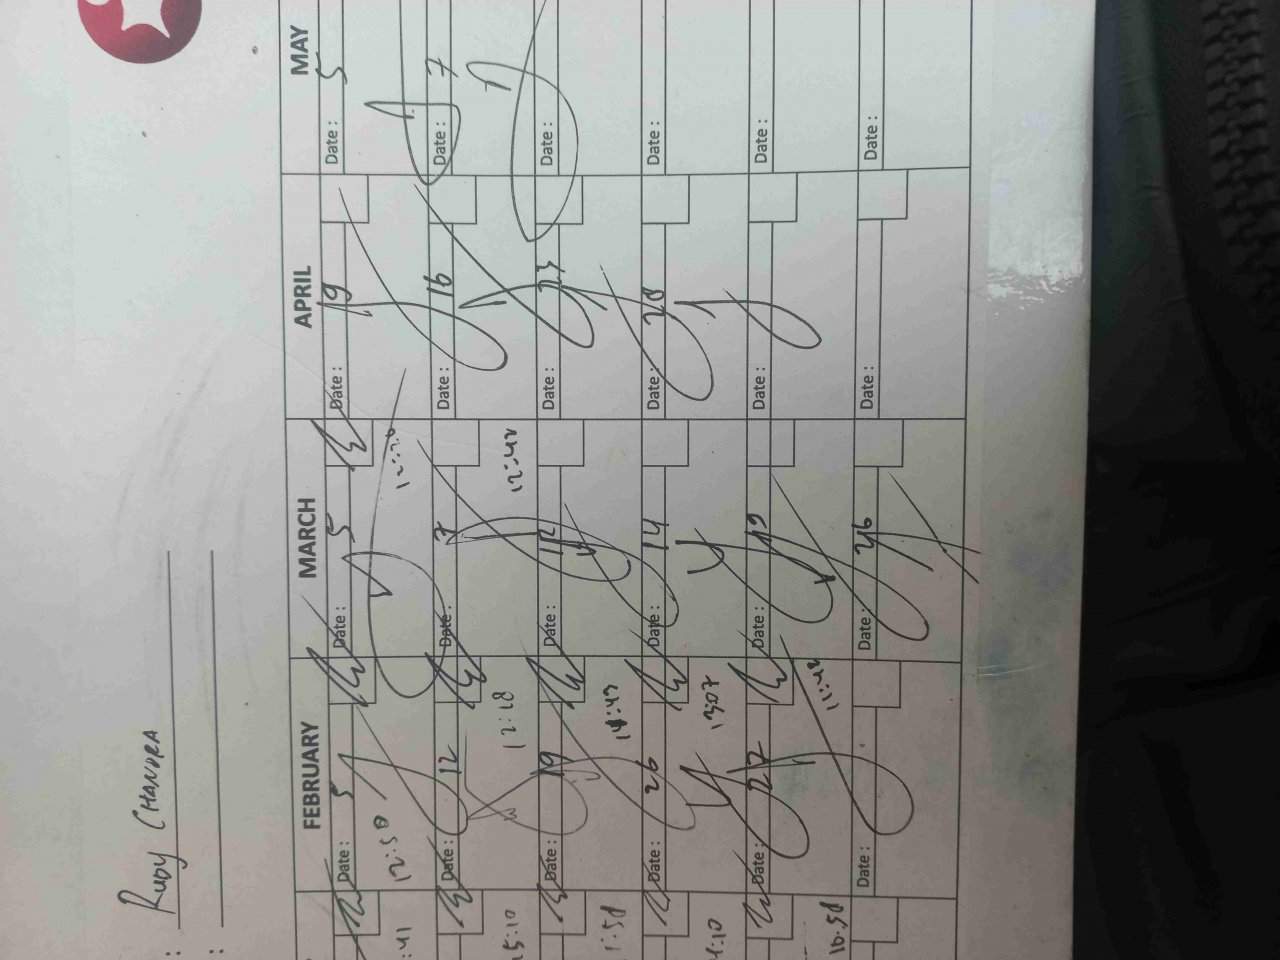 : RUDY CHANDRA
:
FEBRUARY MARCH APRIL MAY
Date : 5 Date : 5 Date : 19 Date : 5
:41 12:50
Date : 12 Date : 7 Date : 16 Date : 7
5:10 12:28 12:42
Date : 19 Date : 12 Date : 23 Date :
1:58 14:43
Date : 26 Date : 14 Date : Date :
4:10 13:07
Date : 27 Date : 19 Date : Date :
16:58 11:42
Date : Date : 26 Date : Date :